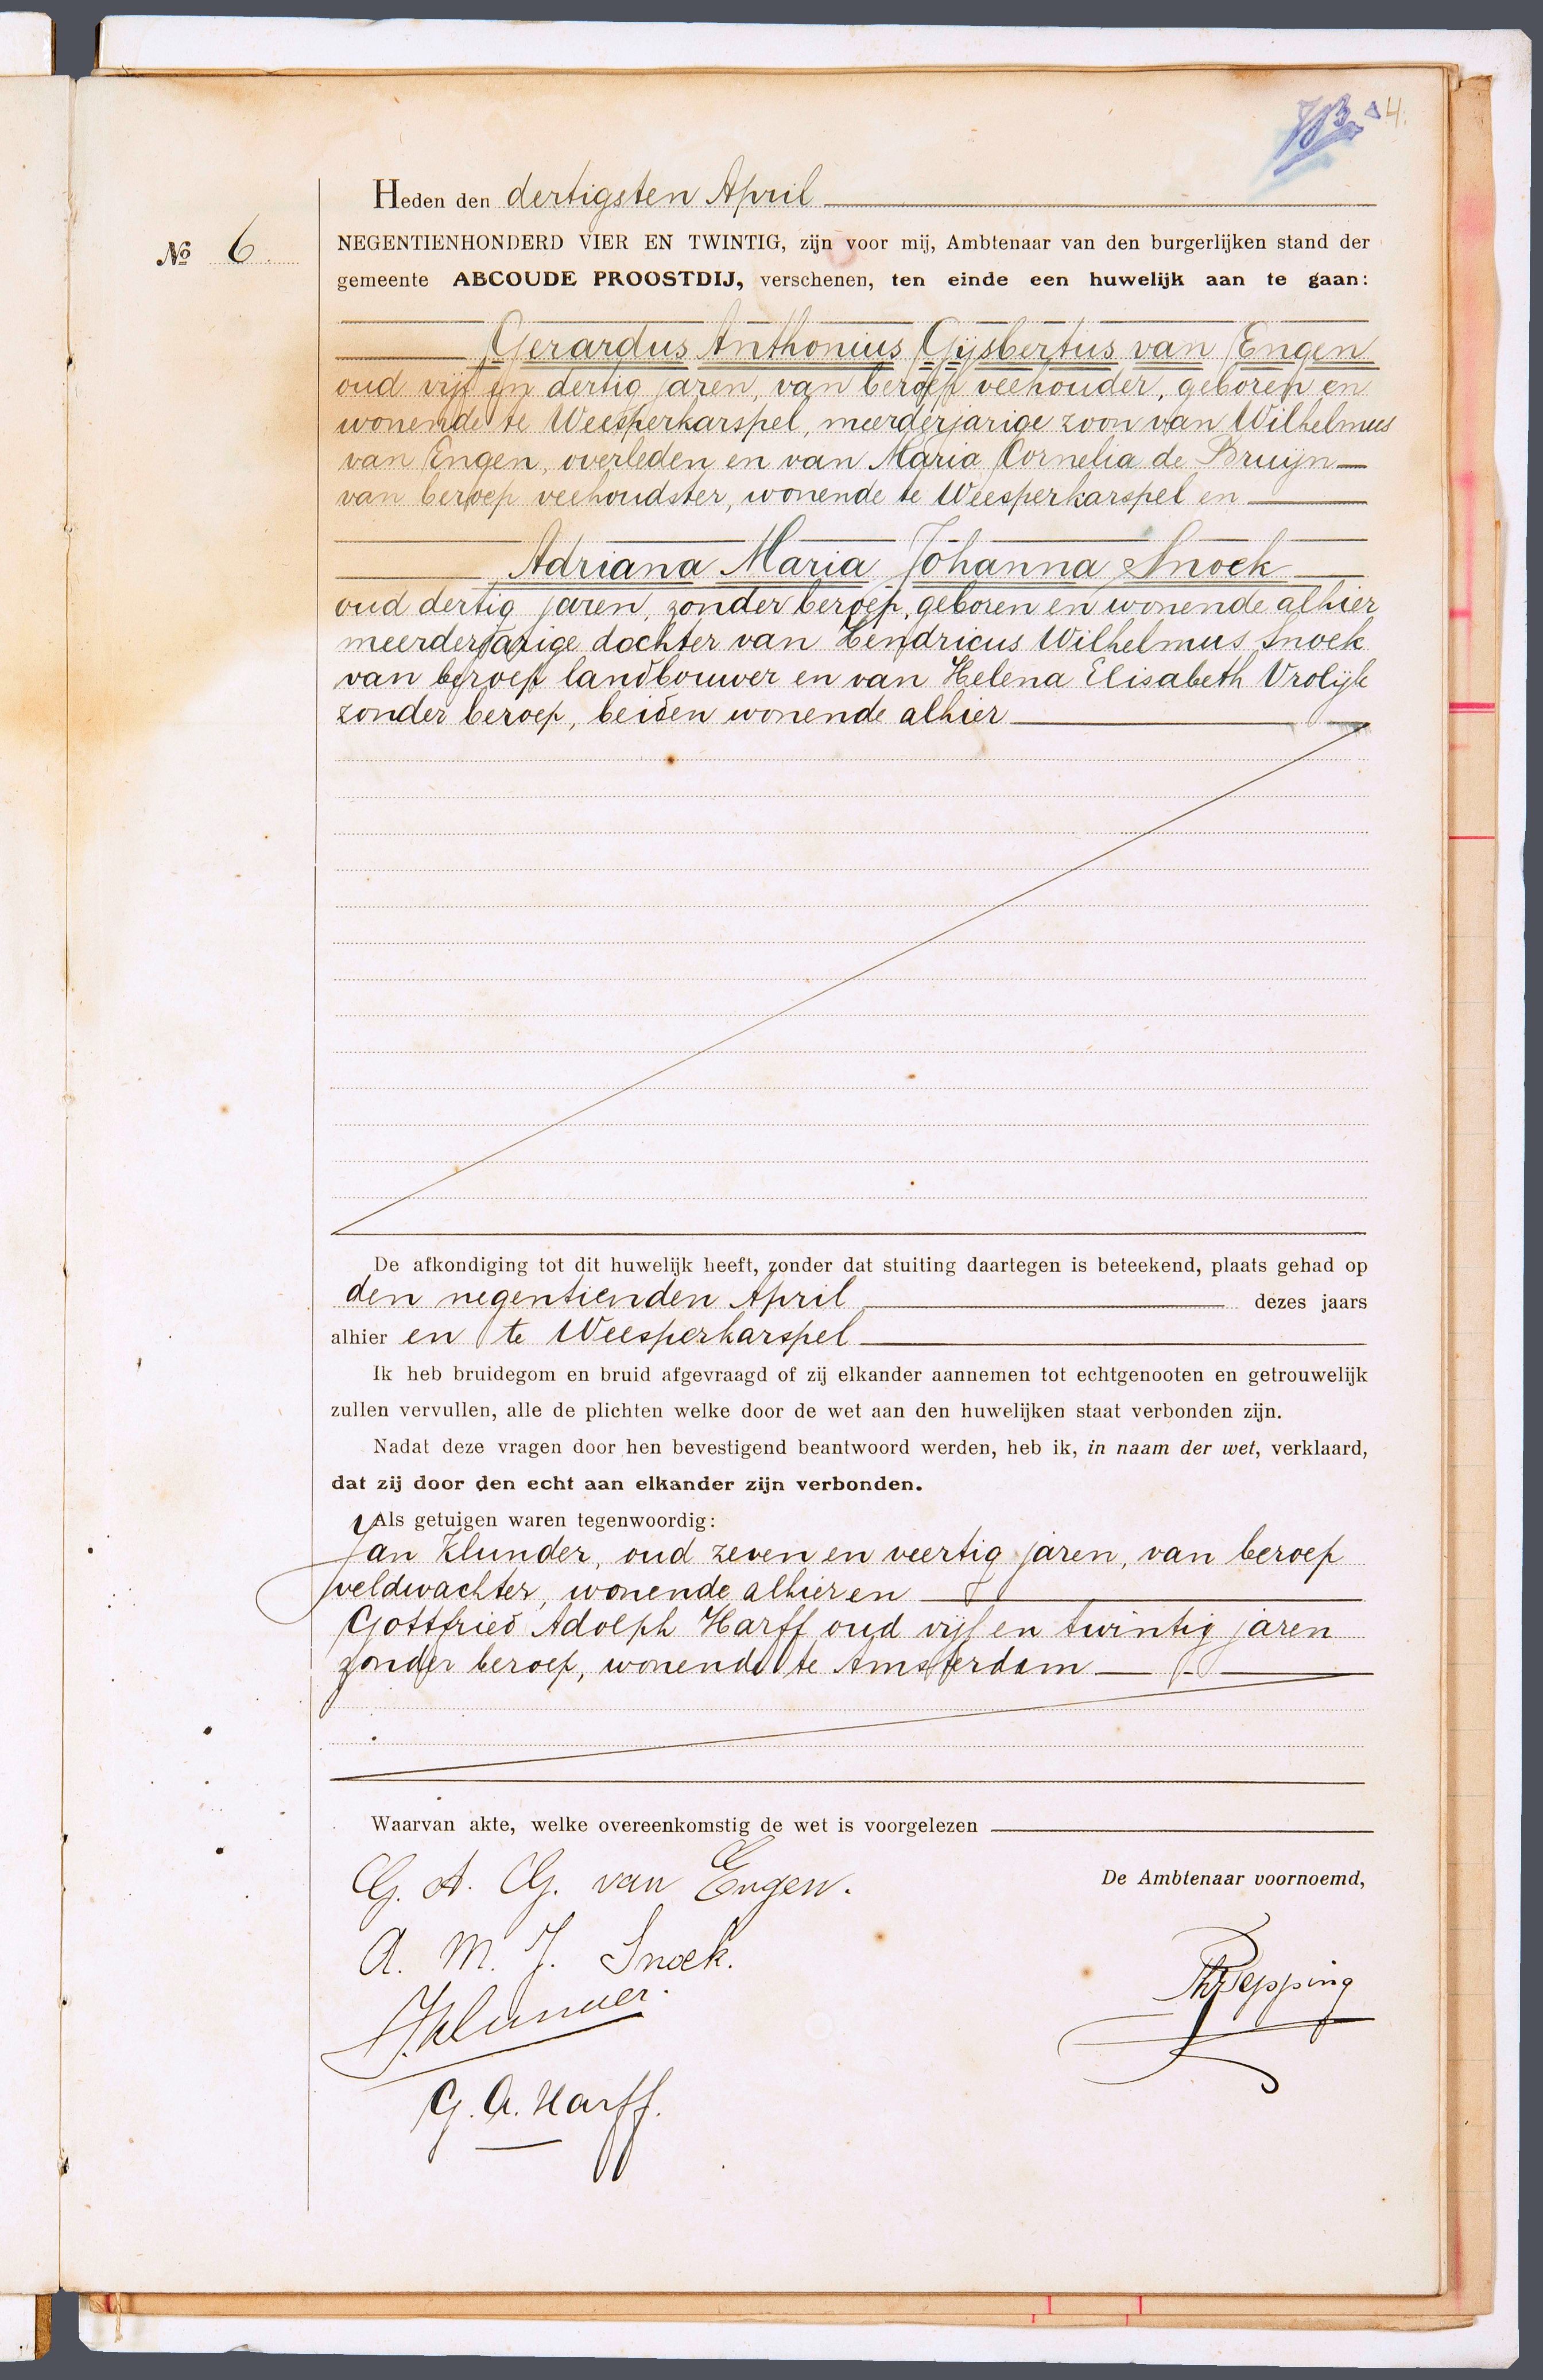 4.
Heden den dertigsten April
No 6.
NEGENTIENHONDERD VIER EN TWINTIG, zijn voor mij, Ambtenaar van den burgerlijken stand der
gemeente ABCOUDE PROOSTDIJ, verschenen, ten einde een huwelijk aan te gaan:
Gerardus Anthonius Gijsbertus van Engen
oud vijf en dertig jaren, van beroep veehouder, geboren en
wonende te Weesperkarspel, meerderjarige zoon van Wilhelmus
van Engen, overleden en van Maria Cornelia de Bruijn
van beroep veehoudster, wonende te Weesperkarspel en
Adriana Maria Johanna Snoek
oud dertig jaren, zonder beroep, geboren en wonende alhier
meerderjarige dochter van Hendricus Wilhelmus Snoek
van beroep landbouwer en van Helena Elisabeth Vrolijk
zonder beroep, beiden wonende alhier
De afkondiging tot dit huwelijk heeft, zonder dat stuiting daartegen is beteekend, plaats gehad op
den negentienden April dezes jaars
alhier en te Weesperkarspel
Ik heb bruidegom en bruid afgevraagd of zij elkander aannemen tot echtgenooten en getrouwelijk
zullen vervullen, alle de plichten welke door de wet aan den huwelijken staat verbonden zijn.
Nadat deze vragen door hen bevestigend beantwoord werden, heb ik, in naam der wet, verklaard,
dat zij door den echt aan elkander zijn verbonden.
Als getuigen waren tegenwoordig:
Jan Klunder, oud zeven en veertig jaren, van beroep
veldwachter, wonende alhier en
Gottfried Adolph Harff oud vijf en twintig jaren
zonder beroep, wonende te Amsterdam
Waarvan akte, welke overeenkomstig de wet is voorgelezen
G. A. G. van Engen.
De Ambtenaar voornoemd,
A. M. J. Snoek.
J. Klunder.
G. A. Harff.